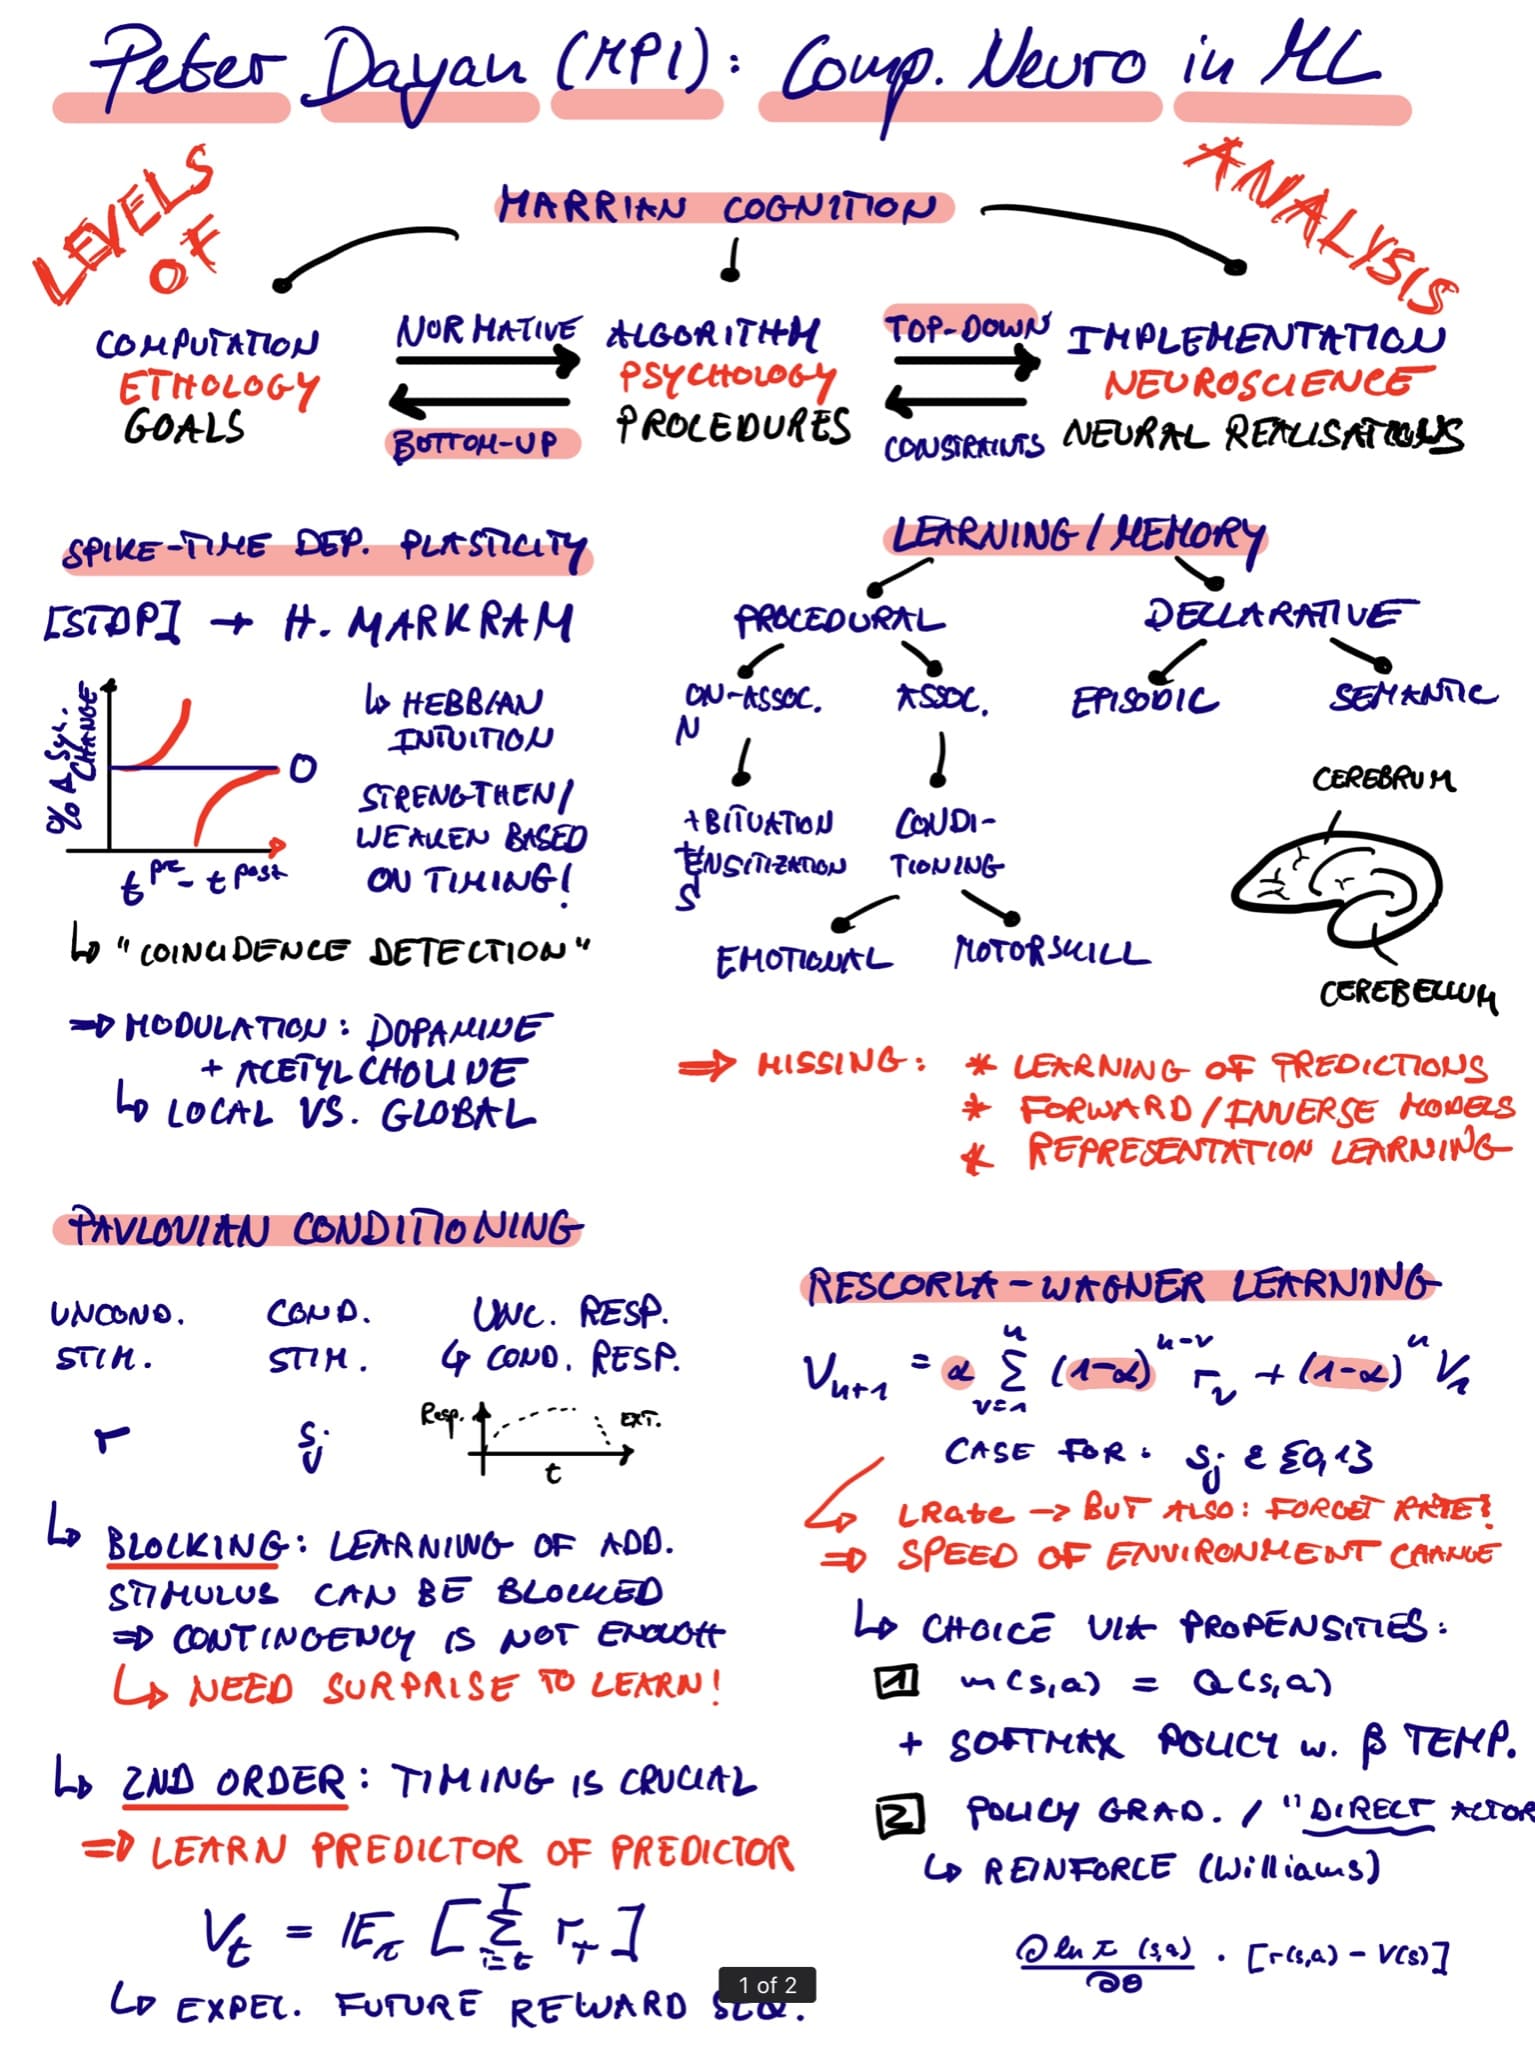 Peter Dayan (MPI): Comp. Neuro in ML
LEVELS OF
ANALYSIS
MARRIAN COGNITION
COMPUTATION
ETHOLOGY
GOALS
NORMATIVE
BOTTOM-UP
ALGORITHM
PSYCHOLOGY
PROCEDURES
TOP-DOWN
CONSTRAINTS
IMPLEMENTATION
NEUROSCIENCE
NEURAL REALISATIONS
SPIKE-TIME DEP. PLASTICITY
[STDP] → H. MARKRAM
% Δ Syn. CHANGE
0
t^pre - t^post
↳ HEBBIAN
INTUITION
STRENGTHEN/
WEAKEN BASED
ON TIMING!
↳ "COINCIDENCE DETECTION"
⇒ MODULATION: DOPAMINE
+ ACETYLCHOLINE
↳ LOCAL VS. GLOBAL
LEARNING/MEMORY
PROCEDURAL
DECLARATIVE
NON-ASSOC.
ASSOC.
EPISODIC
SEMANTIC
HABITUATION
SENSITIZATION
CONDI-
TIONING
EMOTIONAL
MOTORSKILL
CEREBRUM
CEREBELLUM
⇒ MISSING: * LEARNING OF PREDICTIONS
* FORWARD/INVERSE MODELS
* REPRESENTATION LEARNING
PAVLOVIAN CONDITIONING
UNCOND.
STIM.
r
COND.
STIM.
s_j
UNC. RESP.
↳ COND. RESP.
Resp.
EXT.
t
↳ BLOCKING: LEARNING OF ADD.
STIMULUS CAN BE BLOCKED
⇒ CONTINGENCY IS NOT ENOUGH
↳ NEED SURPRISE TO LEARN!
↳ 2ND ORDER: TIMING IS CRUCIAL
⇒ LEARN PREDICTOR OF PREDICTOR
V_t = E_π [Σ_{τ=t}^T r_τ]
↳ EXPEC. FUTURE REWARD SEQ.
RESCORLA-WAGNER LEARNING
V_{n+1} = α Σ_{v=1}^n (1-α)^{n-v} r_v + (1-α)^n V_1
CASE FOR: s_j ∈ {0,1}
↳ LRate → BUT ALSO: FORGET RATE!
⇒ SPEED OF ENVIRONMENT CHANGE
↳ CHOICE VIA PROPENSITIES:
1 m(s,a) = Q(s,a)
+ SOFTMAX POLICY w. β TEMP.
2 POLICY GRAD. / "DIRECT ACTOR
↳ REINFORCE (Williams)
∂ ln π (s,a) / ∂θ · [r(s,a) - V(s)]
1 of 2